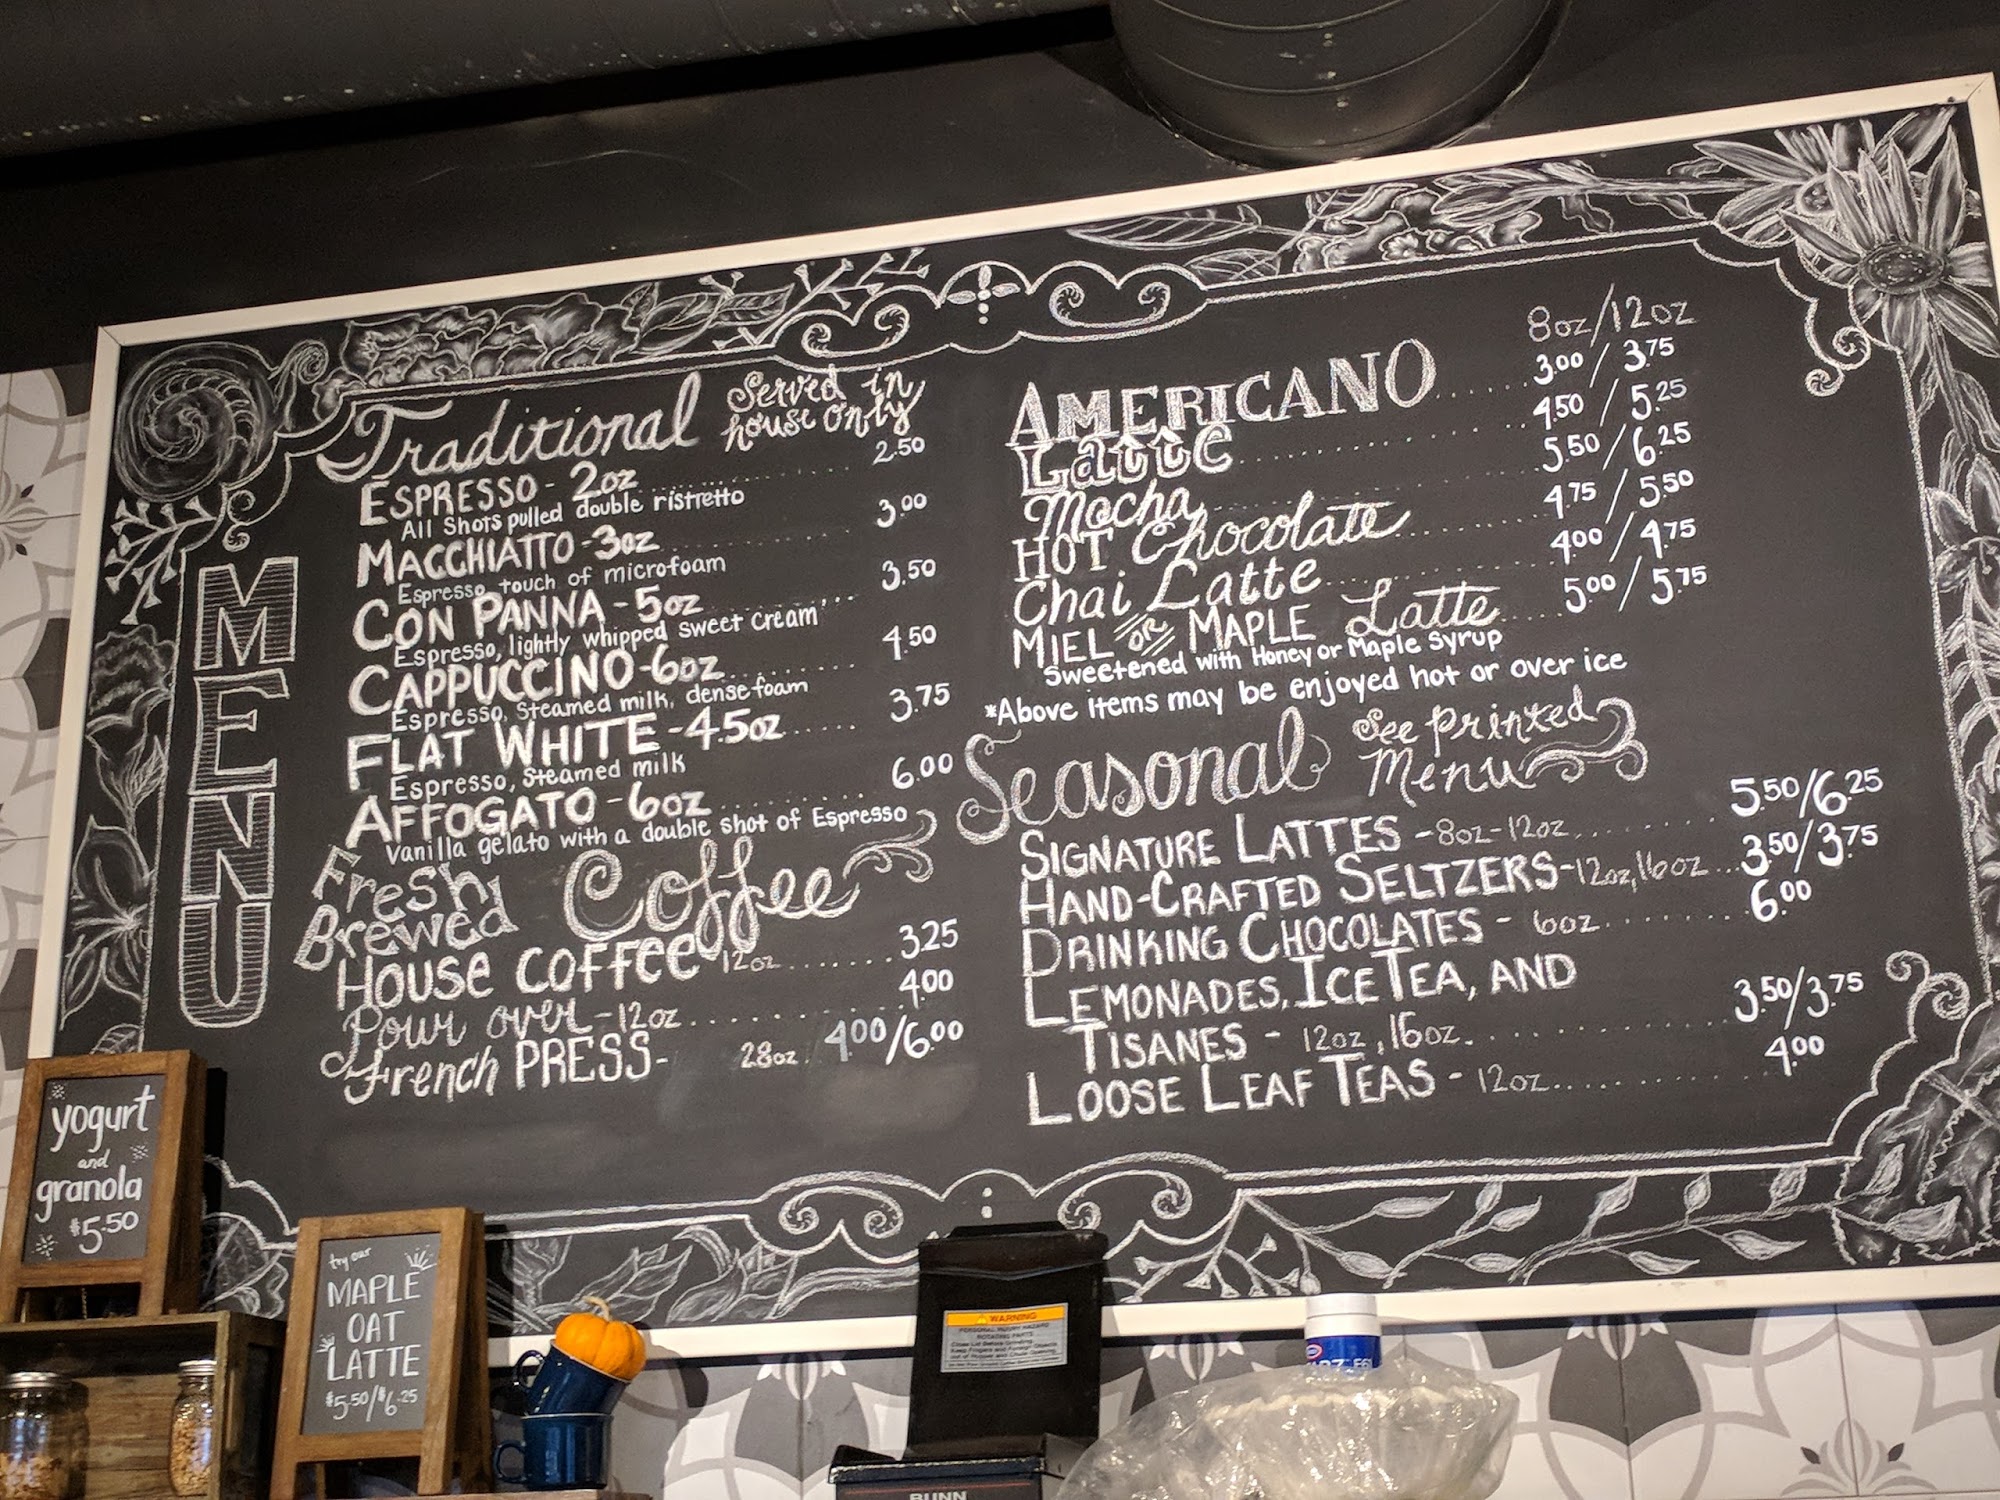 MENU
Traditional Served in house only
ESPRESSO - 2oz ........ 2.50
All Shots pulled double ristretto
MACCHIATTO - 3oz ........ 3.00
Espresso, touch of microfoam
CON PANNA - 5oz ........ 3.50
Espresso, lightly whipped sweet cream
CAPPUCCINO - 6oz ........ 4.50
Espresso, Steamed milk, dense foam
FLAT WHITE - 4.5oz ..... 3.75
Espresso, Steamed milk
AFFOGATO - 6oz ........ 6.00
Vanilla gelato with a double shot of Espresso
Fresh Brewed Coffee
HOUSE COFFEE 12oz ....... 3.25
Pour over - 12oz ........ 4.00
French PRESS - 28oz. 4.00/6.00
8oz/12oz
AMERICANO ...... 3.00 / 3.75
Latte ........ 4.50 / 5.25
Mocha ........ 5.50 / 6.25
HOT Chocolate ...... 4.75 / 5.50
Chai Latte ........ 4.00 / 4.75
MIEL OR MAPLE Latte ..... 5.00 / 5.75
Sweetened with Honey or Maple Syrup
*Above items may be enjoyed hot or over ice
Seasonal See Printed Menu
SIGNATURE LATTES - 8oz - 12oz ........ 5.50/6.25
HAND-CRAFTED SELTZERS - 12oz, 16oz ... 3.50/3.75
DRINKING CHOCOLATES - 6oz ........ 6.00
LEMONADES, ICE TEA, AND
TISANES - 12oz, 16oz. ........ 3.50/3.75
LOOSE LEAF TEAS - 12oz ........ 4.00
yogurt
and
granola
$5.50
try our
MAPLE
OAT
LATTE
$5.50/$6.25
WARNING
PERSONAL INJURY HAZARD
ROTATING PARTS
BUNN